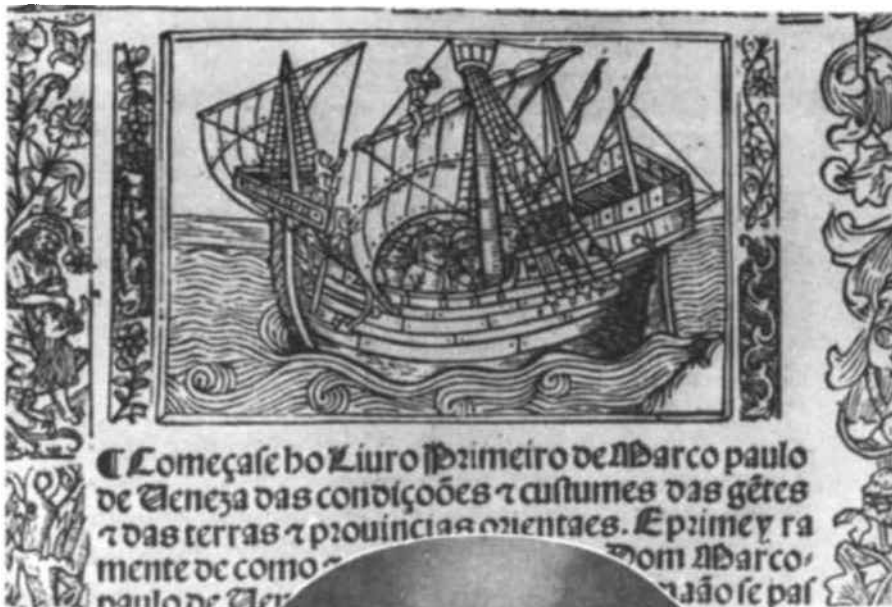 ¶ Começase ho Liuro Primeiro de Marco paulo
de Ueneza das condiçoões ⁊ custumes das gẽtes
⁊ das terras ⁊ prouincias orientaes. E prime y ra
mente de como ⁊ Dom Marco
paulo de
não se pas